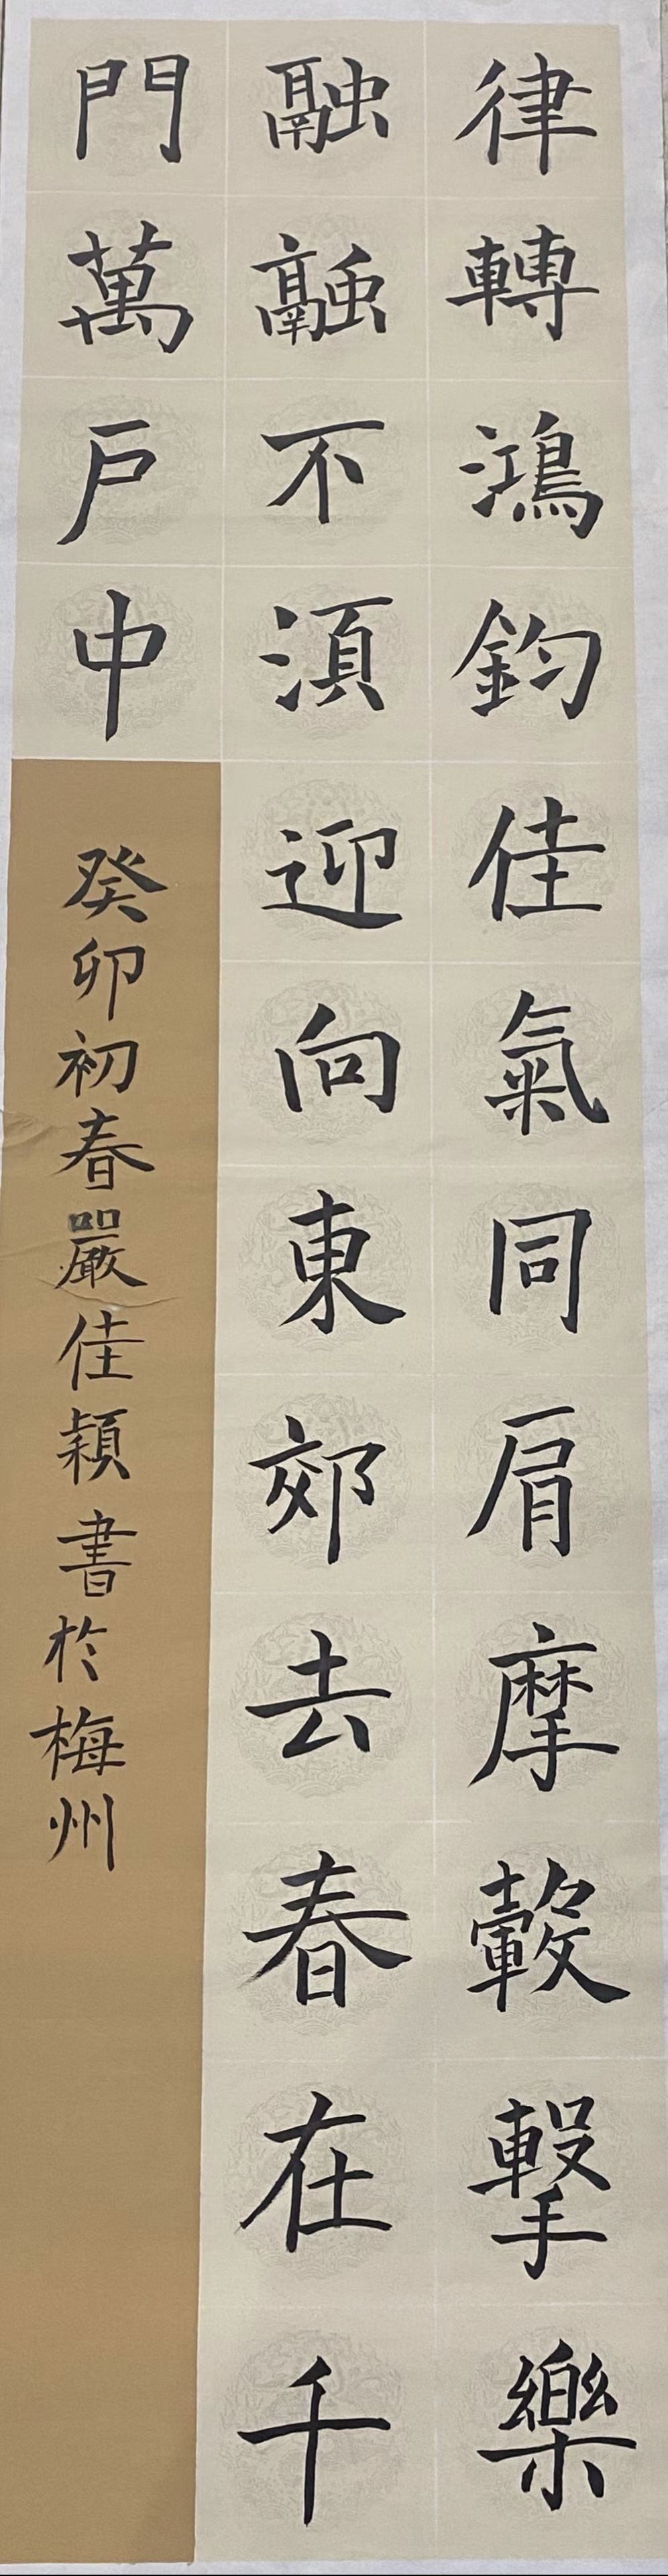 律轉鴻鈞佳氣同肩摩轂擊樂
融融不須迎向東郊去春在千
門萬户中
癸卯初春嚴佳穎書於梅州